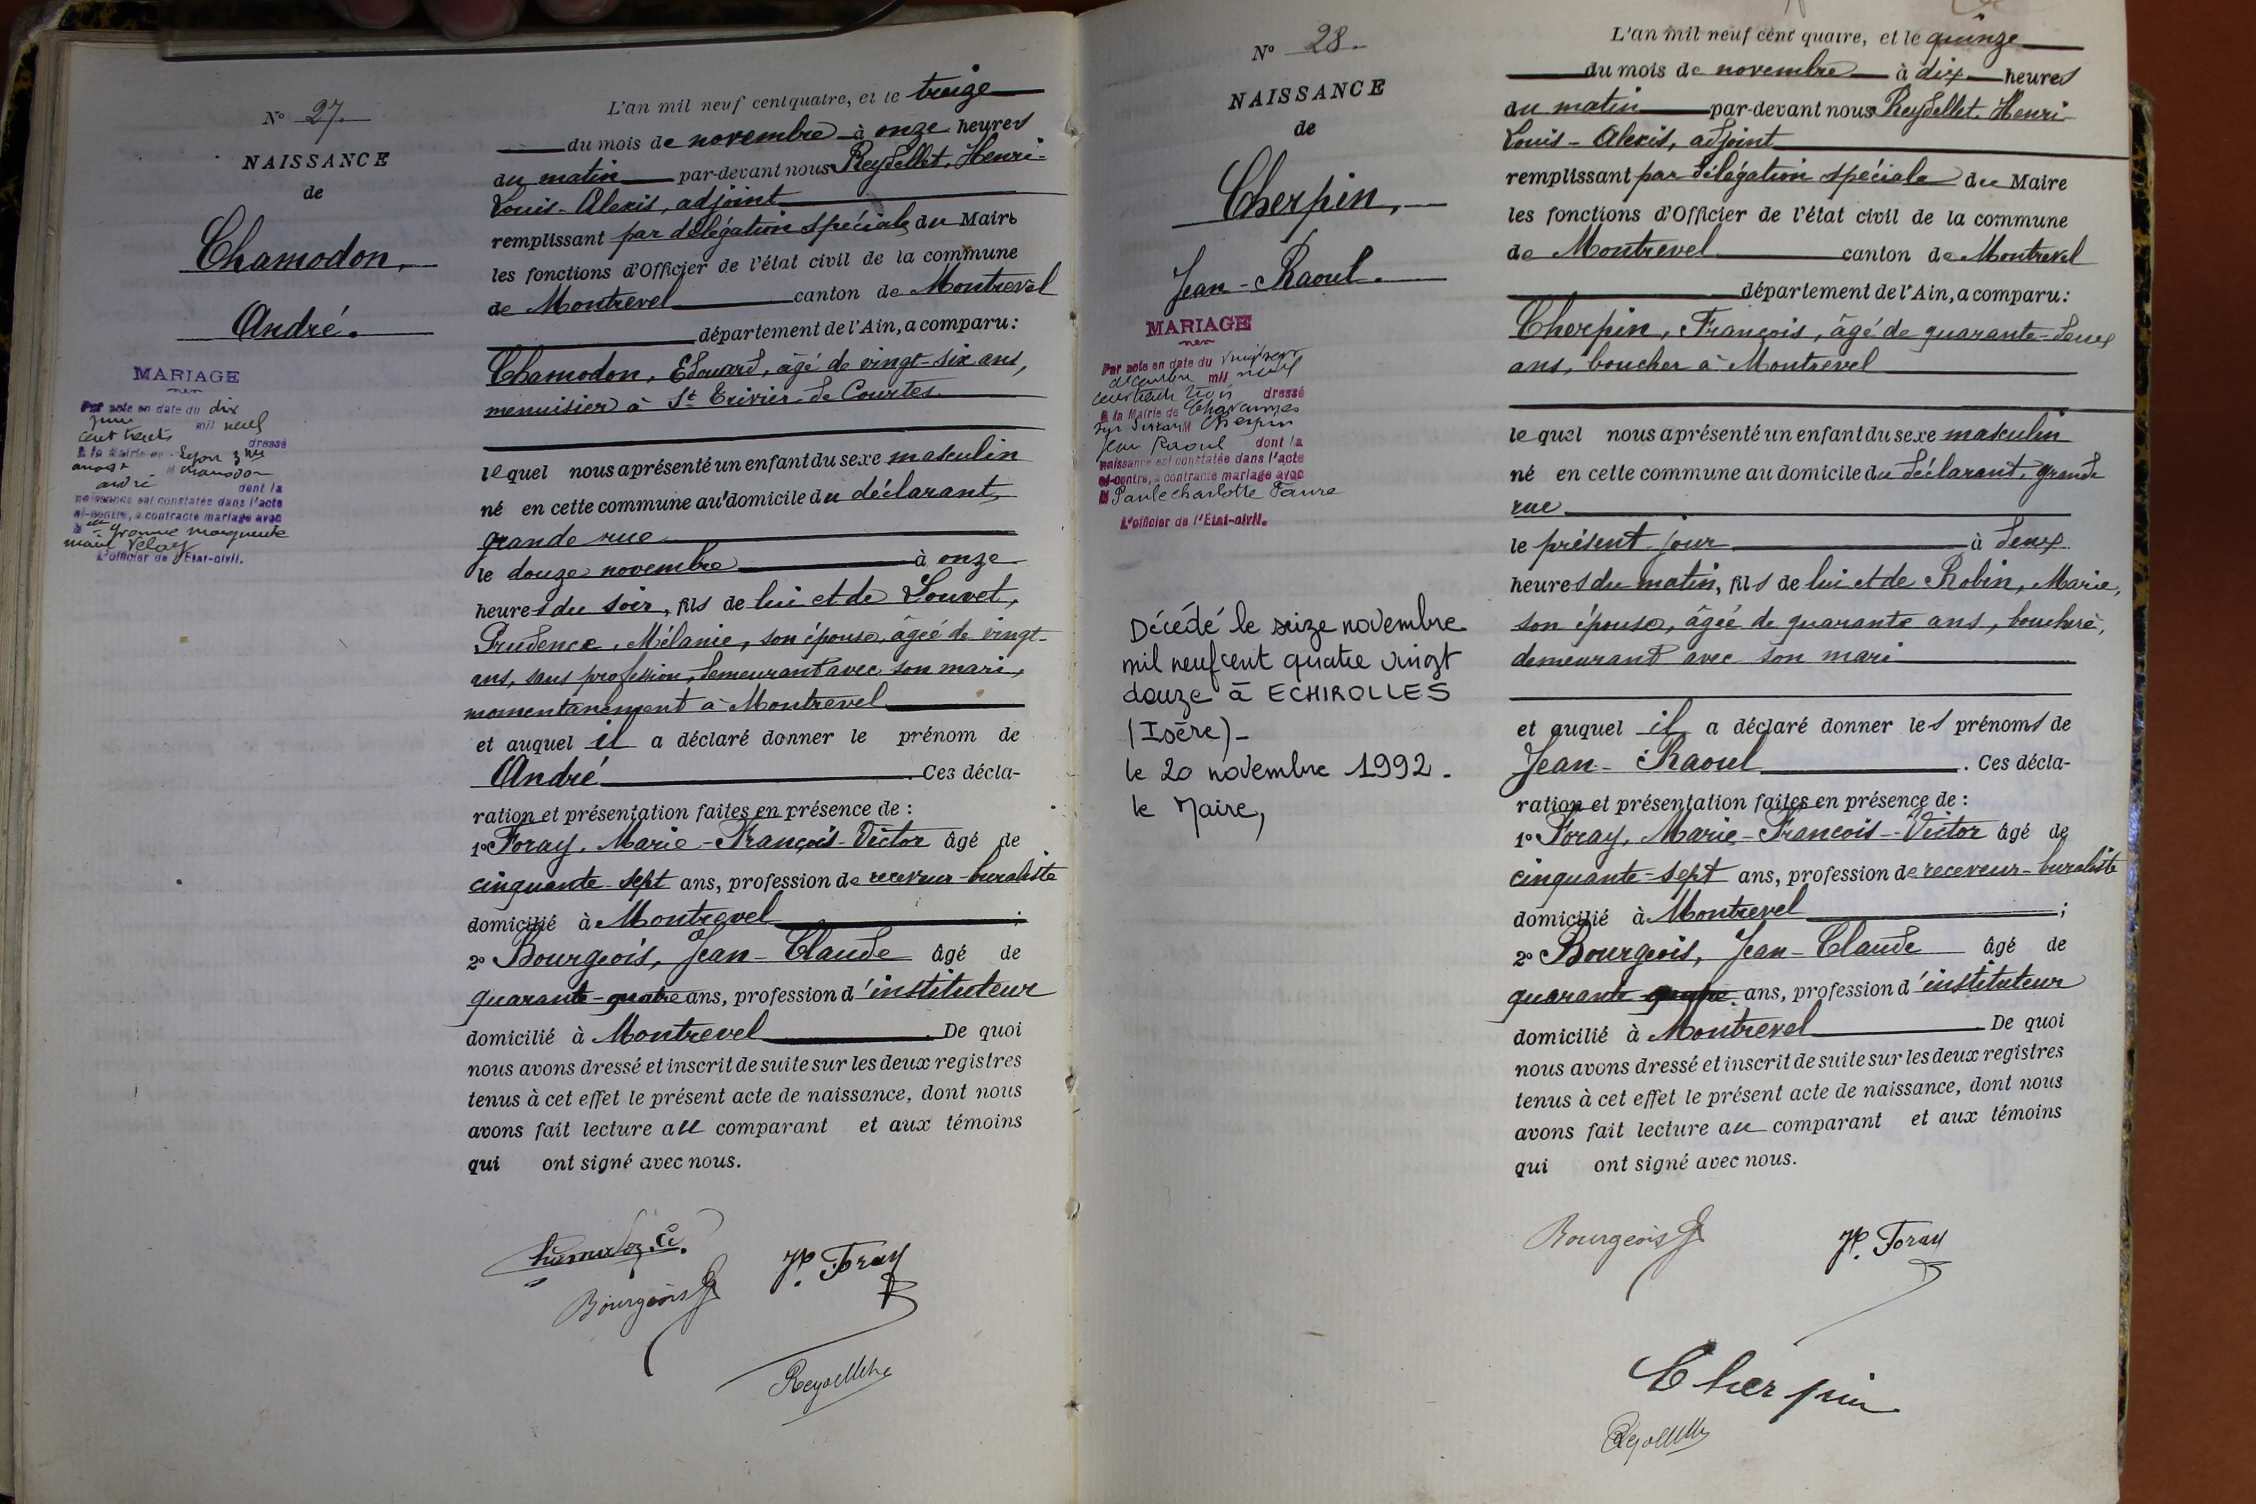 N° 27.
NAISSANCE
de
Chamodon,
André.
MARIAGE
Par acte en date du dix
juin mil neuf
cent trente
dressé
à la Mairie de Lyon 3me
M Chamodon
andré dont la
naissance est constatée dans l'acte
ci-contre, a contracté mariage avec
Yvonne Marguerite
L'officier de l'Etat-civil.
L'an mil neuf cent quatre, et le treize
du mois de novembre à onze heures
du matin par-devant nous Reydellet, Henri-
Louis-Alexis, adjoint
remplissant par délégation spéciale du Maire
les fonctions d'Officier de l'état civil de la commune
de Montrevel canton de Montrevel
département de l'Ain, a comparu :
Chamodon, Edouard, âgé de vingt-six ans,
menuisier à St Trivier-de Courtes
lequel nous a présenté un enfant du sexe masculin
né en cette commune au domicile du déclarant,
grande rue
le douze novembre à onze
heures du soir, fils de lui et de Louvet,
Prudence, Mélanie, son épouse, âgée de vingt-
ans, sans profession, demeurant avec son mari,
momentanement à Montrevel
et auquel il a déclaré donner le prénom de
André . Ces décla-
ration et présentation faites en présence de :
1° Foray, Marie-François-Victor âgé de
cinquante-sept ans, profession de receveur-buraliste
domicilié à Montrevel ;
2° Bourgeois, Jean-Claude âgé de
quarante-quatre ans, profession d'instituteur
domicilié à Montrevel . De quoi
nous avons dressé et inscrit de suite sur les deux registres
tenus à cet effet le présent acte de naissance, dont nous
avons fait lecture au comparant et aux témoins
qui ont signé avec nous.
Bourgeois
Foray
Reydellet
N° 28.
NAISSANCE
de
Cherpin,
Jean-Raoul.
MARIAGE
Par acte en date du
décembre mil neuf
cent trente trois dressé
à la Mairie de Chavannes
Cherpin
Jean Raoul dont la
naissance est constatée dans l'acte
ci-contre, a contracté mariage avec
Paule Charlotte Favre
L'officier de l'Etat-civil.
Décédé le seize novembre
mil neuf cent quatre vingt
douze à ECHIROLLES
(Isère)-
le 20 novembre 1992.
le Maire,
L'an mil neuf cent quatre, et le quinze
du mois de novembre à dix heures
du matin par-devant nous Reydellet, Henri-
Louis-Alexis, adjoint
remplissant par délégation spéciale du Maire
les fonctions d'Officier de l'état civil de la commune
de Montrevel canton de Montrevel
département de l'Ain, a comparu :
Cherpin, François, âgé de quarante-deux
ans, boucher à Montrevel
lequel nous a présenté un enfant du sexe masculin
né en cette commune au domicile du déclarant, grande
rue
le présent jour à deux
heures du matin, fils de lui et de Robin, Marie,
son épouse, âgée de quarante ans, bouchère,
demeurant avec son mari
et auquel il a déclaré donner les prénoms de
Jean-Raoul . Ces décla-
ration et présentation faites en présence de :
1° Foray, Marie-François-Victor âgé de
cinquante-sept ans, profession de receveur-buraliste
domicilié à Montrevel ;
2° Bourgeois, Jean-Claude âgé de
quarante quatre ans, profession d'instituteur
domicilié à Montrevel . De quoi
nous avons dressé et inscrit de suite sur les deux registres
tenus à cet effet le présent acte de naissance, dont nous
avons fait lecture au comparant et aux témoins
qui ont signé avec nous.
Bourgeois
Foray
Cherpin
Reydellet